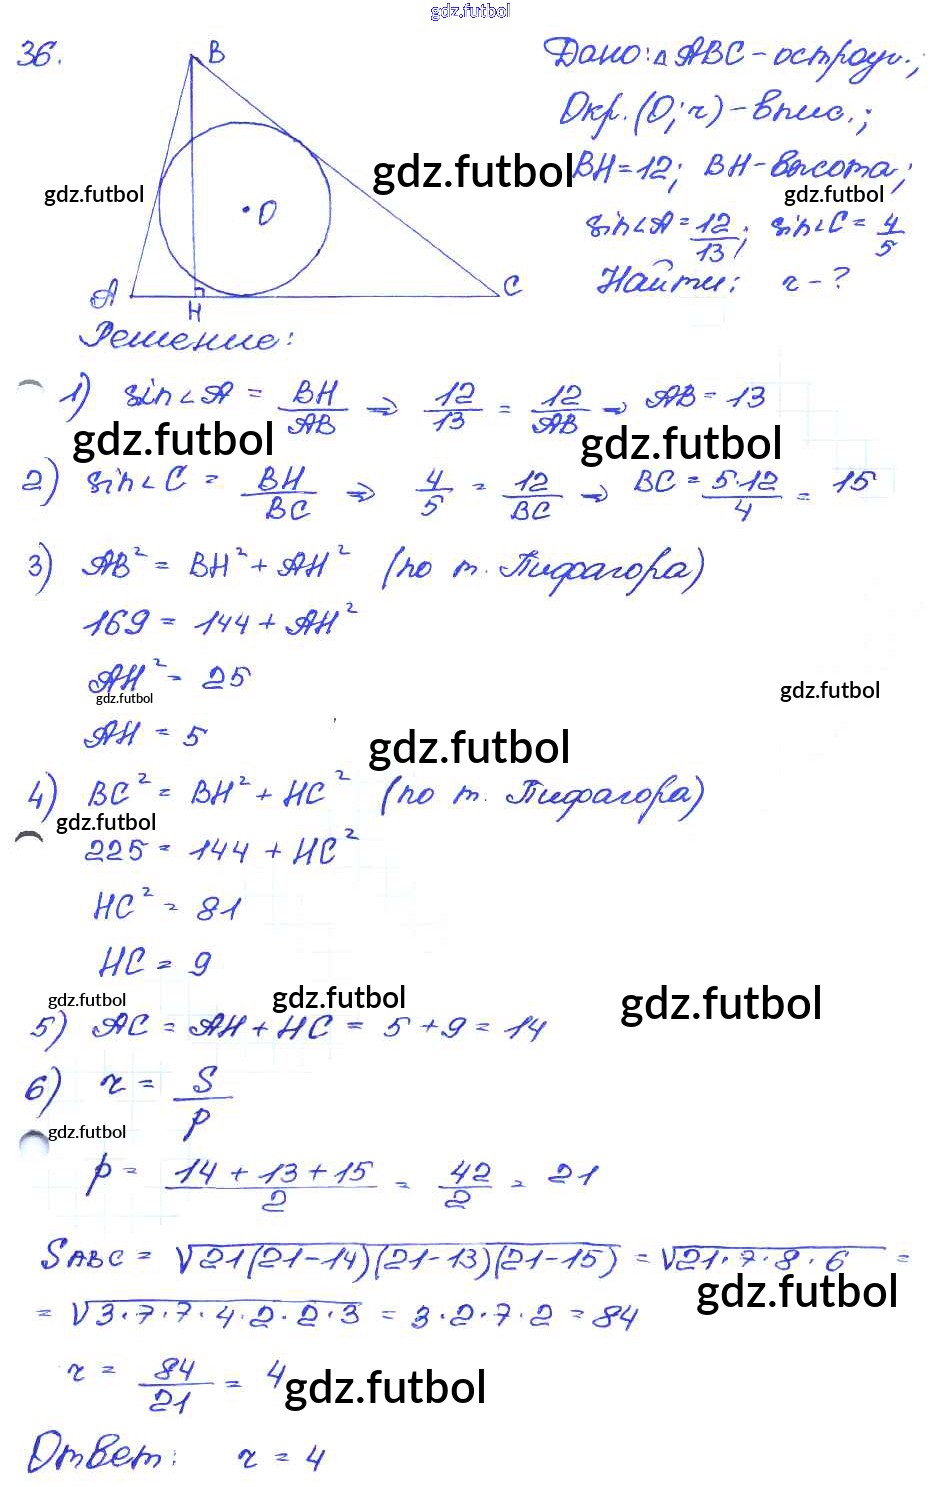 gdz.futbol
36.
B
Дано: △ ABC - остроуг.;
Окр. (O; r) - впис.;
gdz.futbol
BH = 12; BH - высота;
gdz.futbol
gdz.futbol
O
sin∠A = 12/13; sin∠C = 4/5
Найти: r - ?
A
H
C
Решение:
1) sin∠A = BH/AB ⇒ 12/13 = 12/AB ⇒ AB = 13
gdz.futbol
gdz.futbol
2) sin∠C = BH/BC ⇒ 4/5 = 12/BC ⇒ BC = 5·12/4 = 15
3) AB² = BH² + AH² (по т. Пифагора)
169 = 144 + AH²
AH² = 25
gdz.futbol
gdz.futbol
AH = 5
gdz.futbol
4) BC² = BH² + HC² (по т. Пифагора)
gdz.futbol
225 = 144 + HC²
HC² = 81
HC = 9
gdz.futbol
gdz.futbol
gdz.futbol
5) AC = AH + HC = 5 + 9 = 14
6) r = S/p
gdz.futbol
p = 14 + 13 + 15/2 = 42/2 = 21
SABC = √21(21-14)(21-13)(21-15) = √21·7·8·6 =
gdz.futbol
= √3·7·7·4·2·2·3 = 3·2·7·2 = 84
r = 84/21 = 4
gdz.futbol
Ответ: r = 4